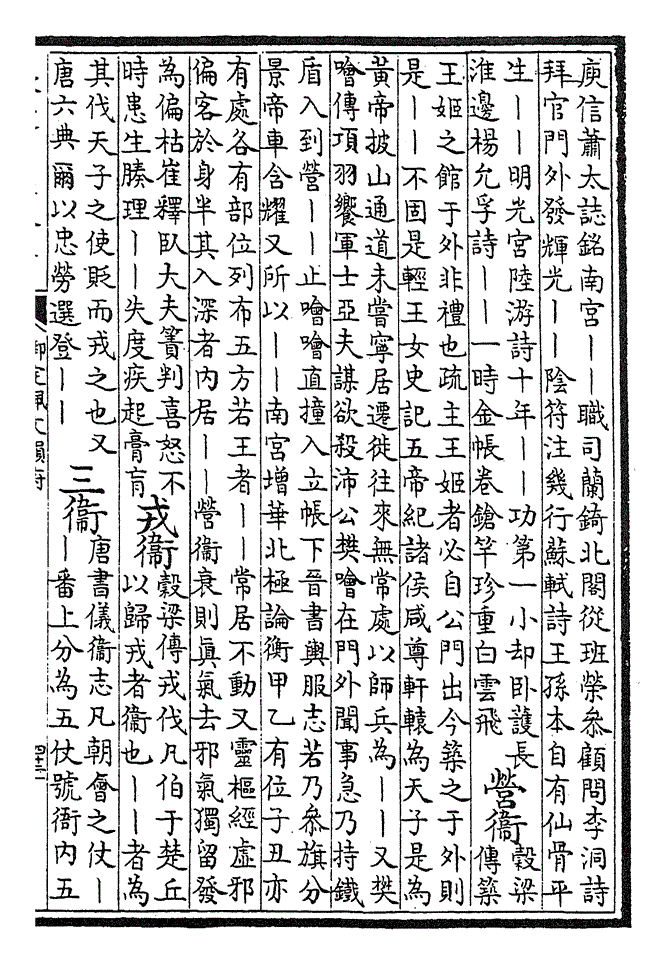 庾信蕭太誌銘南宮——職司蘭錡北閣從班榮叅顧問李洞詩
拜官門外發輝光——陰符注幾行蘇軾詩王孫本自有仙骨平
生——明光宮陸游詩十年——功第一小却卧護長
淮邊楊允孚詩——一時金帳卷鎗竿珍重白雲飛
營衞
穀梁
傳築
王姬之館于外非禮也疏主王姬者必自公門出今築之于外則
是——不固是輕王女史記五帝紀諸侯咸尊軒轅為天子是為
黃帝披山通道未嘗寧居遷徙往來無常處以師兵為——又樊
噲傳項羽饗軍士亞夫謀欲殺沛公樊噲在門外聞事急乃持鐵
盾入到營——止噲噲直撞入立帳下晉書輿服志若乃叅旗分
景帝車含耀又所以——南宮增華北極論衡甲乙有位子丑亦
有處各有部位列布五方若王者——常居不動又靈樞經虛邪
偏客於身半其入深者內居——營衞衰則眞氣去邪氣獨留發
為偏枯崔釋卧大夫簀判喜怒不
時患生腠理——失度疾起膏肓
戎衞
穀梁傳戎伐凡伯于楚丘
以歸戎者衞也——者為
其伐天子之使貶而戎之也又
唐六典爾以忠勞選登——
三衞
唐書儀衞志凡朝會之仗—
—番上分為五仗號衙內五